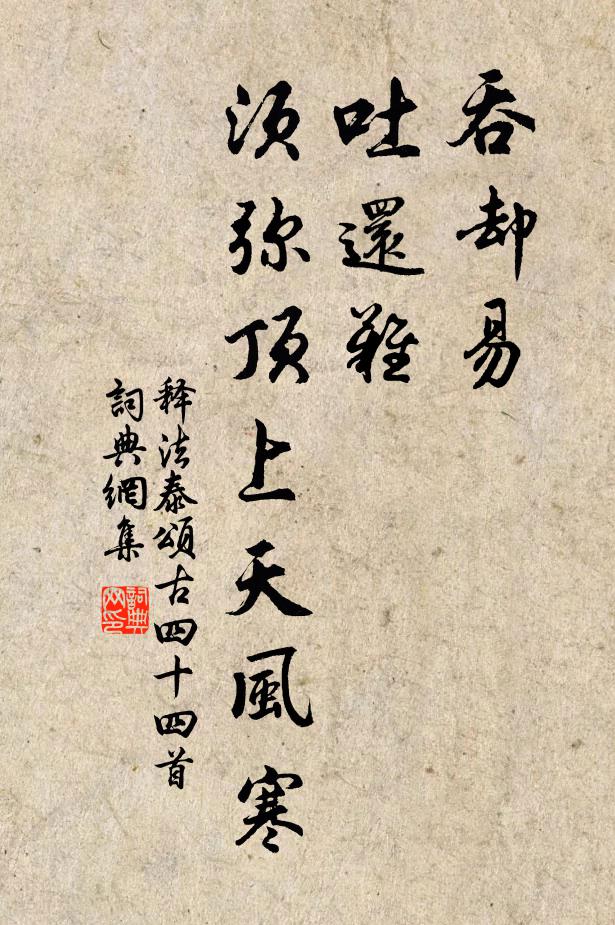 吞却易
吐還難
須弥頂上天風寒
释法泰頌古四十四首
詞典網集
詞典網印